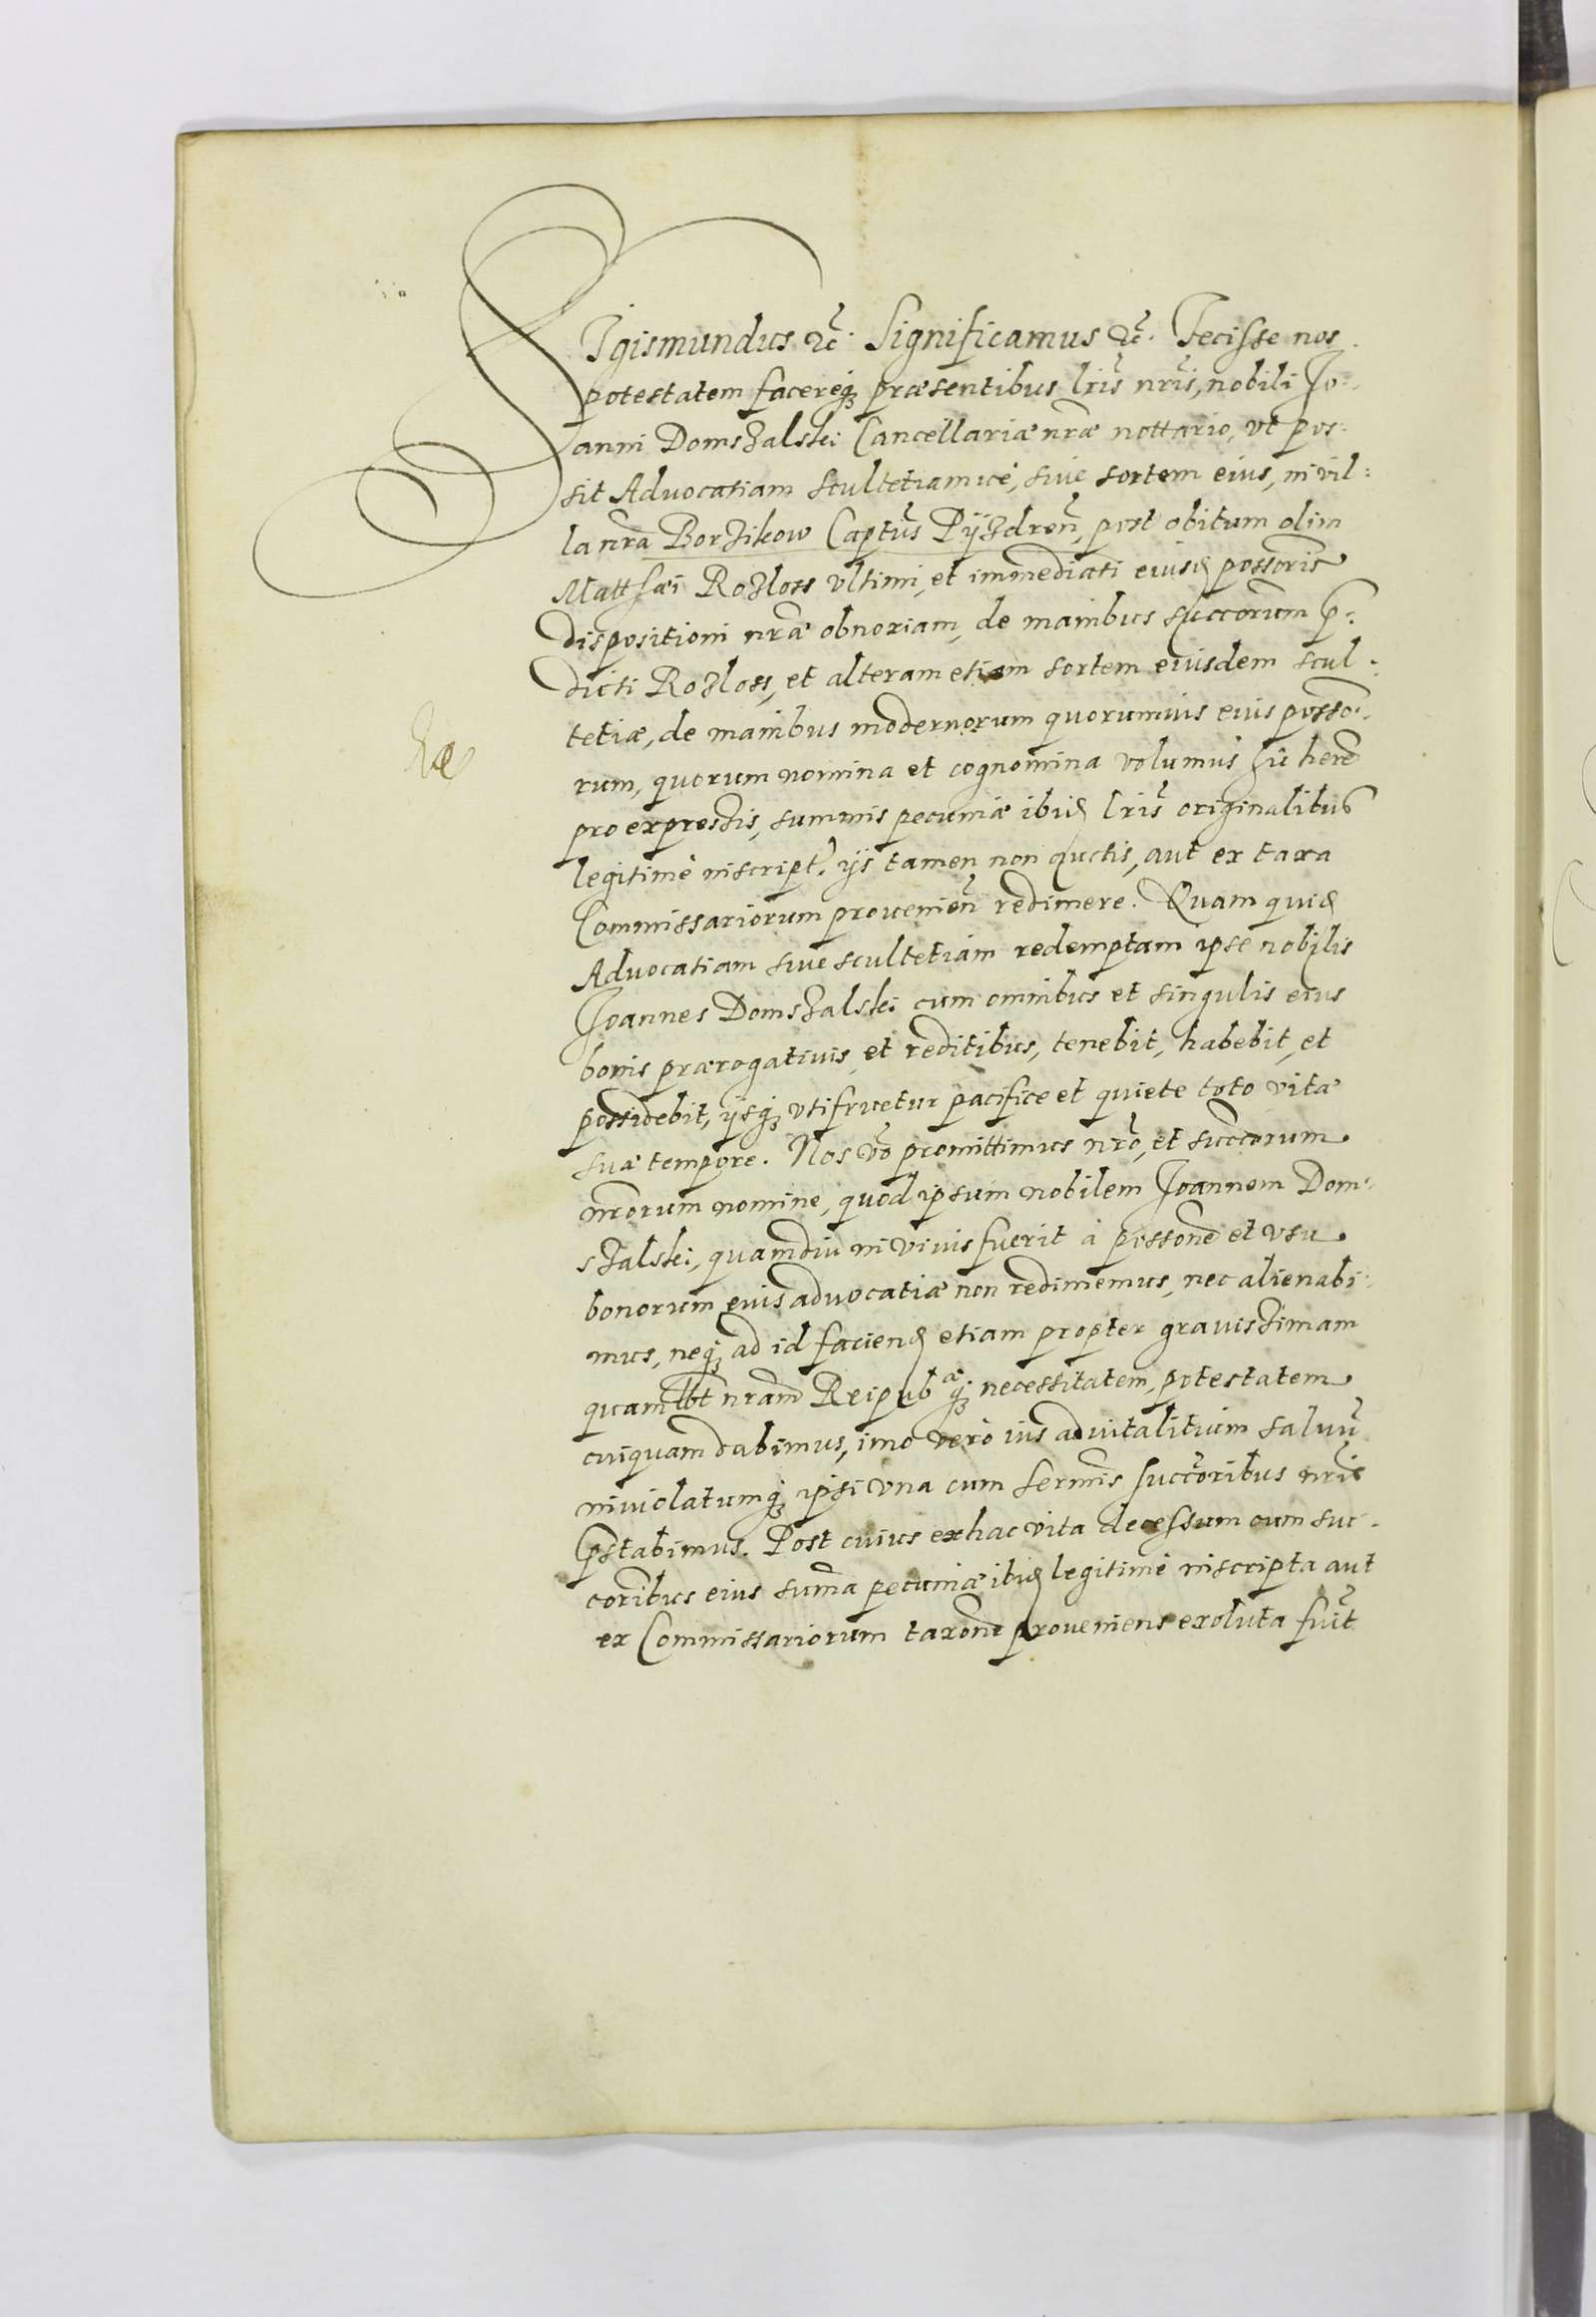 SIgismundus etc. Significamus etc. Fecisse nos
potestatem facereq; præsentibus lris nris, nobili Jo:
anni Domszalski Cancellariæ nræ nottario, vt pos:
sit Advocatiam scultetiamué, siue sortem eius, in vil:
la nra Borzikow Captus Pÿzdren, post obitum olim
Matthæi Rozloss vltimi, et immediati eiusd possoris
dispositioni nræ obnoxiam, de manibus succorum p:
dicti Rozloss, et alteram etiam sortem eiusdem scul:
tetiæ, de manibus modernorum quorumuis eius posso:
rum, quorum nomina et cognomina volumus hic here
pro expressis, summis pecuniæ ibid lris originalibus
legitimè inscript. ijs tamen non auctis, aut ex taxa
Commissariorum prouenien redimere. Quam quid
Advocatiam siue scultetiam redemptam ipse nobilis
Joannes Domszalski cum omnibus et singulis eius
bonis prærogatiuis, et reditibus, tenebit, habebit, et
possidebit, ijsq; vtifruetur pacifice et quiete toto vitæ
suæ tempore. Nos vo promittimus nro, et succorum
nrorum nomine, quod ipsum nobilem Joannem Dom:
szalski, quamdiu in viuis fuerit à possone et vsu
bonorum eius advocatiæ non redimemus, nec alienabi:
mus, neq; ad id faciend etiam propter gravissimam
quamlbt nram Reipub æ q; necessitatem, potestatem
cuiquam dabimus, imo verò ius advitalitium saluu
inviolatumq; ipsi vna cum sermis succoribus nris
pstabimus. Post cuius ex hac vita decessum cum suc:
coribus eius suma pecuniæ ibid legitimè inscripta aut
ex Commissariorum taxone proueniens exoluta fuit